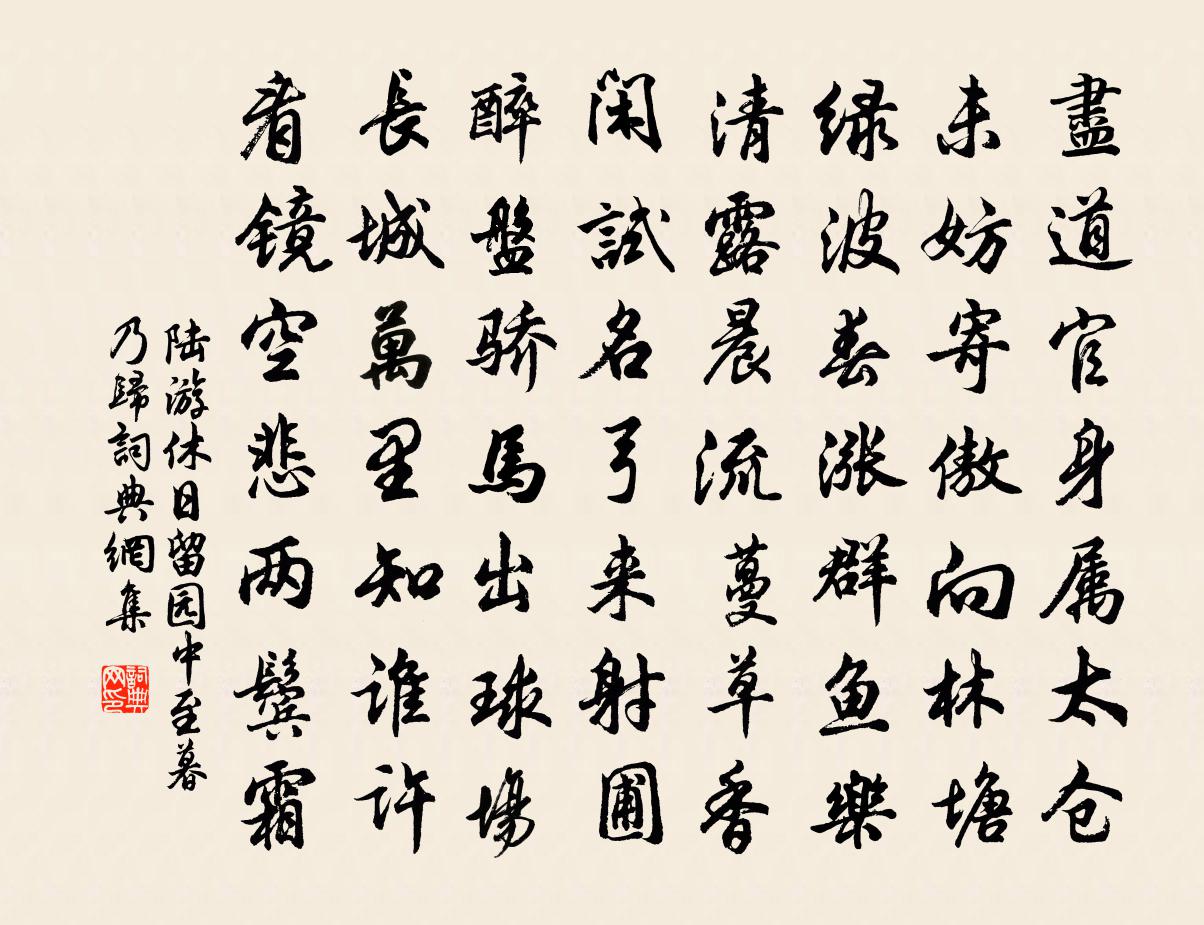 盡道官身属太仓
未妨寄傲向林塘
绿波春涨群鱼樂
清露晨流蔓草香
闲試名弓来射圃
醉盤骄馬出球場
長城萬里知谁许
看镜空悲两鬓霜
陆游休日留园中至暮
乃歸詞典網集
詞典网印